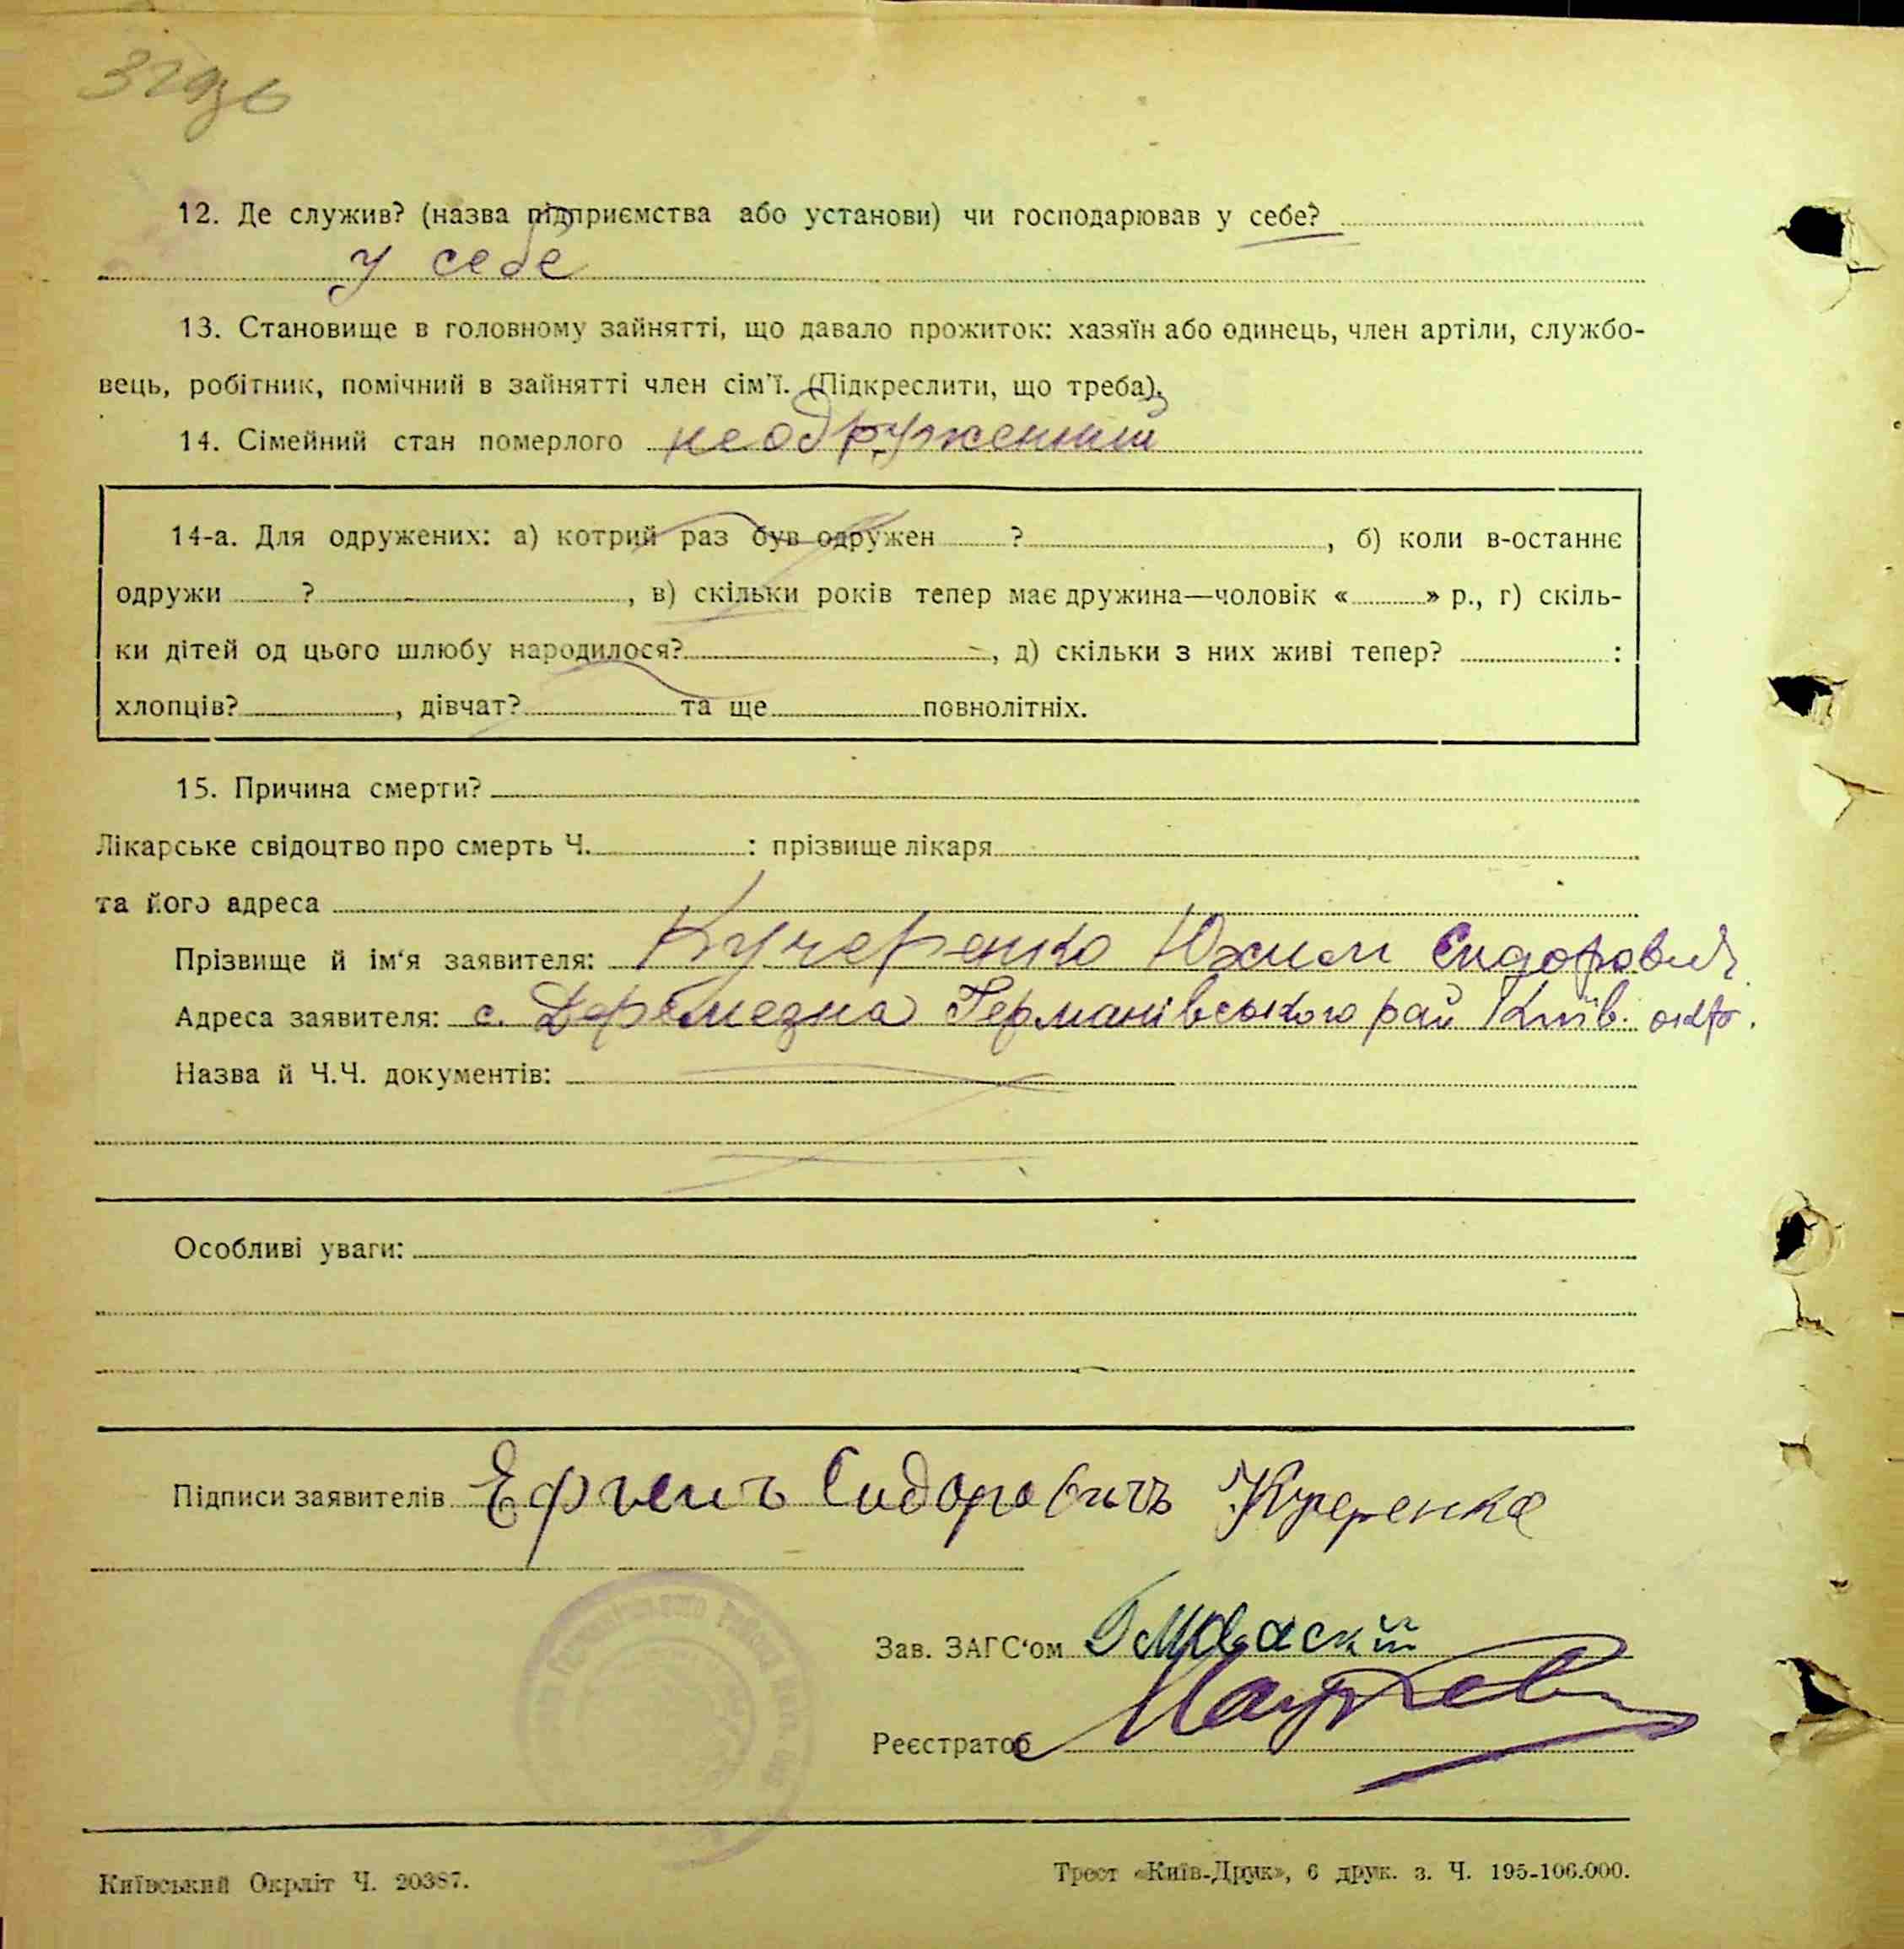 12. Де служив? (назва підприємства або установи) чи господарював у себе?
у себе
13. Становище в головному зайнятті, що давало прожиток: хазяїн або одинець, член артіли, службо-
вець, робітник, помічний в зайнятті член сім'ї. (Підкреслити, що треба).
14. Сімейний стан померлого неодружений
14-а. Для одружених: а) котрий раз був одружен ?, б) коли в-останнє
одружи ?, в) скільки років тепер має дружина—чоловік « » р., г) скіль-
ки дітей од цього шлюбу народилося?, д) скільки з них живі тепер? :
хлопців?, дівчат? та ще повнолітніх.
15. Причина смерти?
Лікарське свідоцтво про смерть Ч. : прізвище лікаря
та його адреса
Прізвище й ім'я заявителя: Кучеренко Юхим Сидорович
Адреса заявителя: с. Деремезна Германівського рай Київ. окр.
Назва й Ч.Ч. документів:
Особливі уваги:
Підписи заявителів Сидоровичъ Кучеренко
Зав. ЗАГС'ом
Реєстратор
Київський Окрліт Ч. 20387.
Трест «Київ-Друк», 6 друк. з. Ч. 195-106.000.